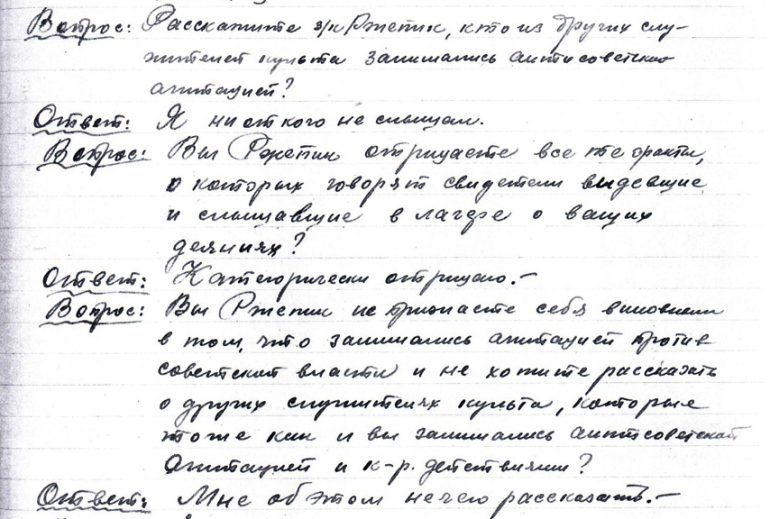 Вопрос: Расскажите з/к Ржепик, кто из других слу-
жителей культа занимались антисоветской
агитацией?
Ответ: Я ни от кого не слышал.
Вопрос: Вы Ржепик отрицаете все те факты,
о которых говорят свидетели видевшие
и слышавшие в лагере о ваших
деяниях?
Ответ: Категорически отрицаю.-
Вопрос: Вы Ржепик не признаете себя виновным
в том, что занимались агитацией против
советской власти и не хотите рассказать
о других служителях культа, которые
тоже как и вы занимались антисоветской
агитацией и к-р. действиями?
Ответ: Мне об этом нечего рассказать.-